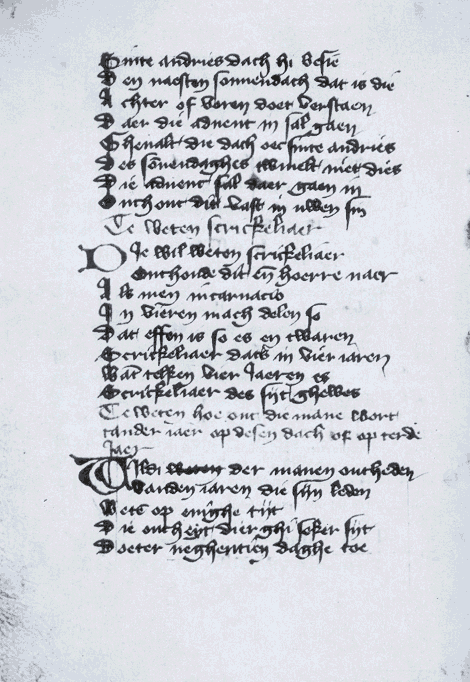 Sinte andries dach hi besie
Den naesten sonnendach dat is die
Achter of voren doet verstaen
Daer die aduent in sal gaen
Gheualt die dach oec sinte andries
Des sonendaghes twiuelt niet dies
Die aduent sal daer gaen in
Onthout dit vast in uwen sin
Te weten scrickeliaer
Die wil weten scrickeliaer
Onthoude dit en hoerre naer
Als men incarnacio
In vieren mach delen so
Dat effen is so es en twaren
Scrickeliaer dats in vier iaren
Want telken vier Jaeren es
Scrickeliaer des sijt ghewes
Te weten hoe out die mane wort
tander iaer op desen dach of op terde
Jaer
Wildi weten der manen outheden
Vanden iaren die sijn leden
Wets op enighe tijt
Die outheyt dier ghi seker sijt
Doeter neghentien daghe toe